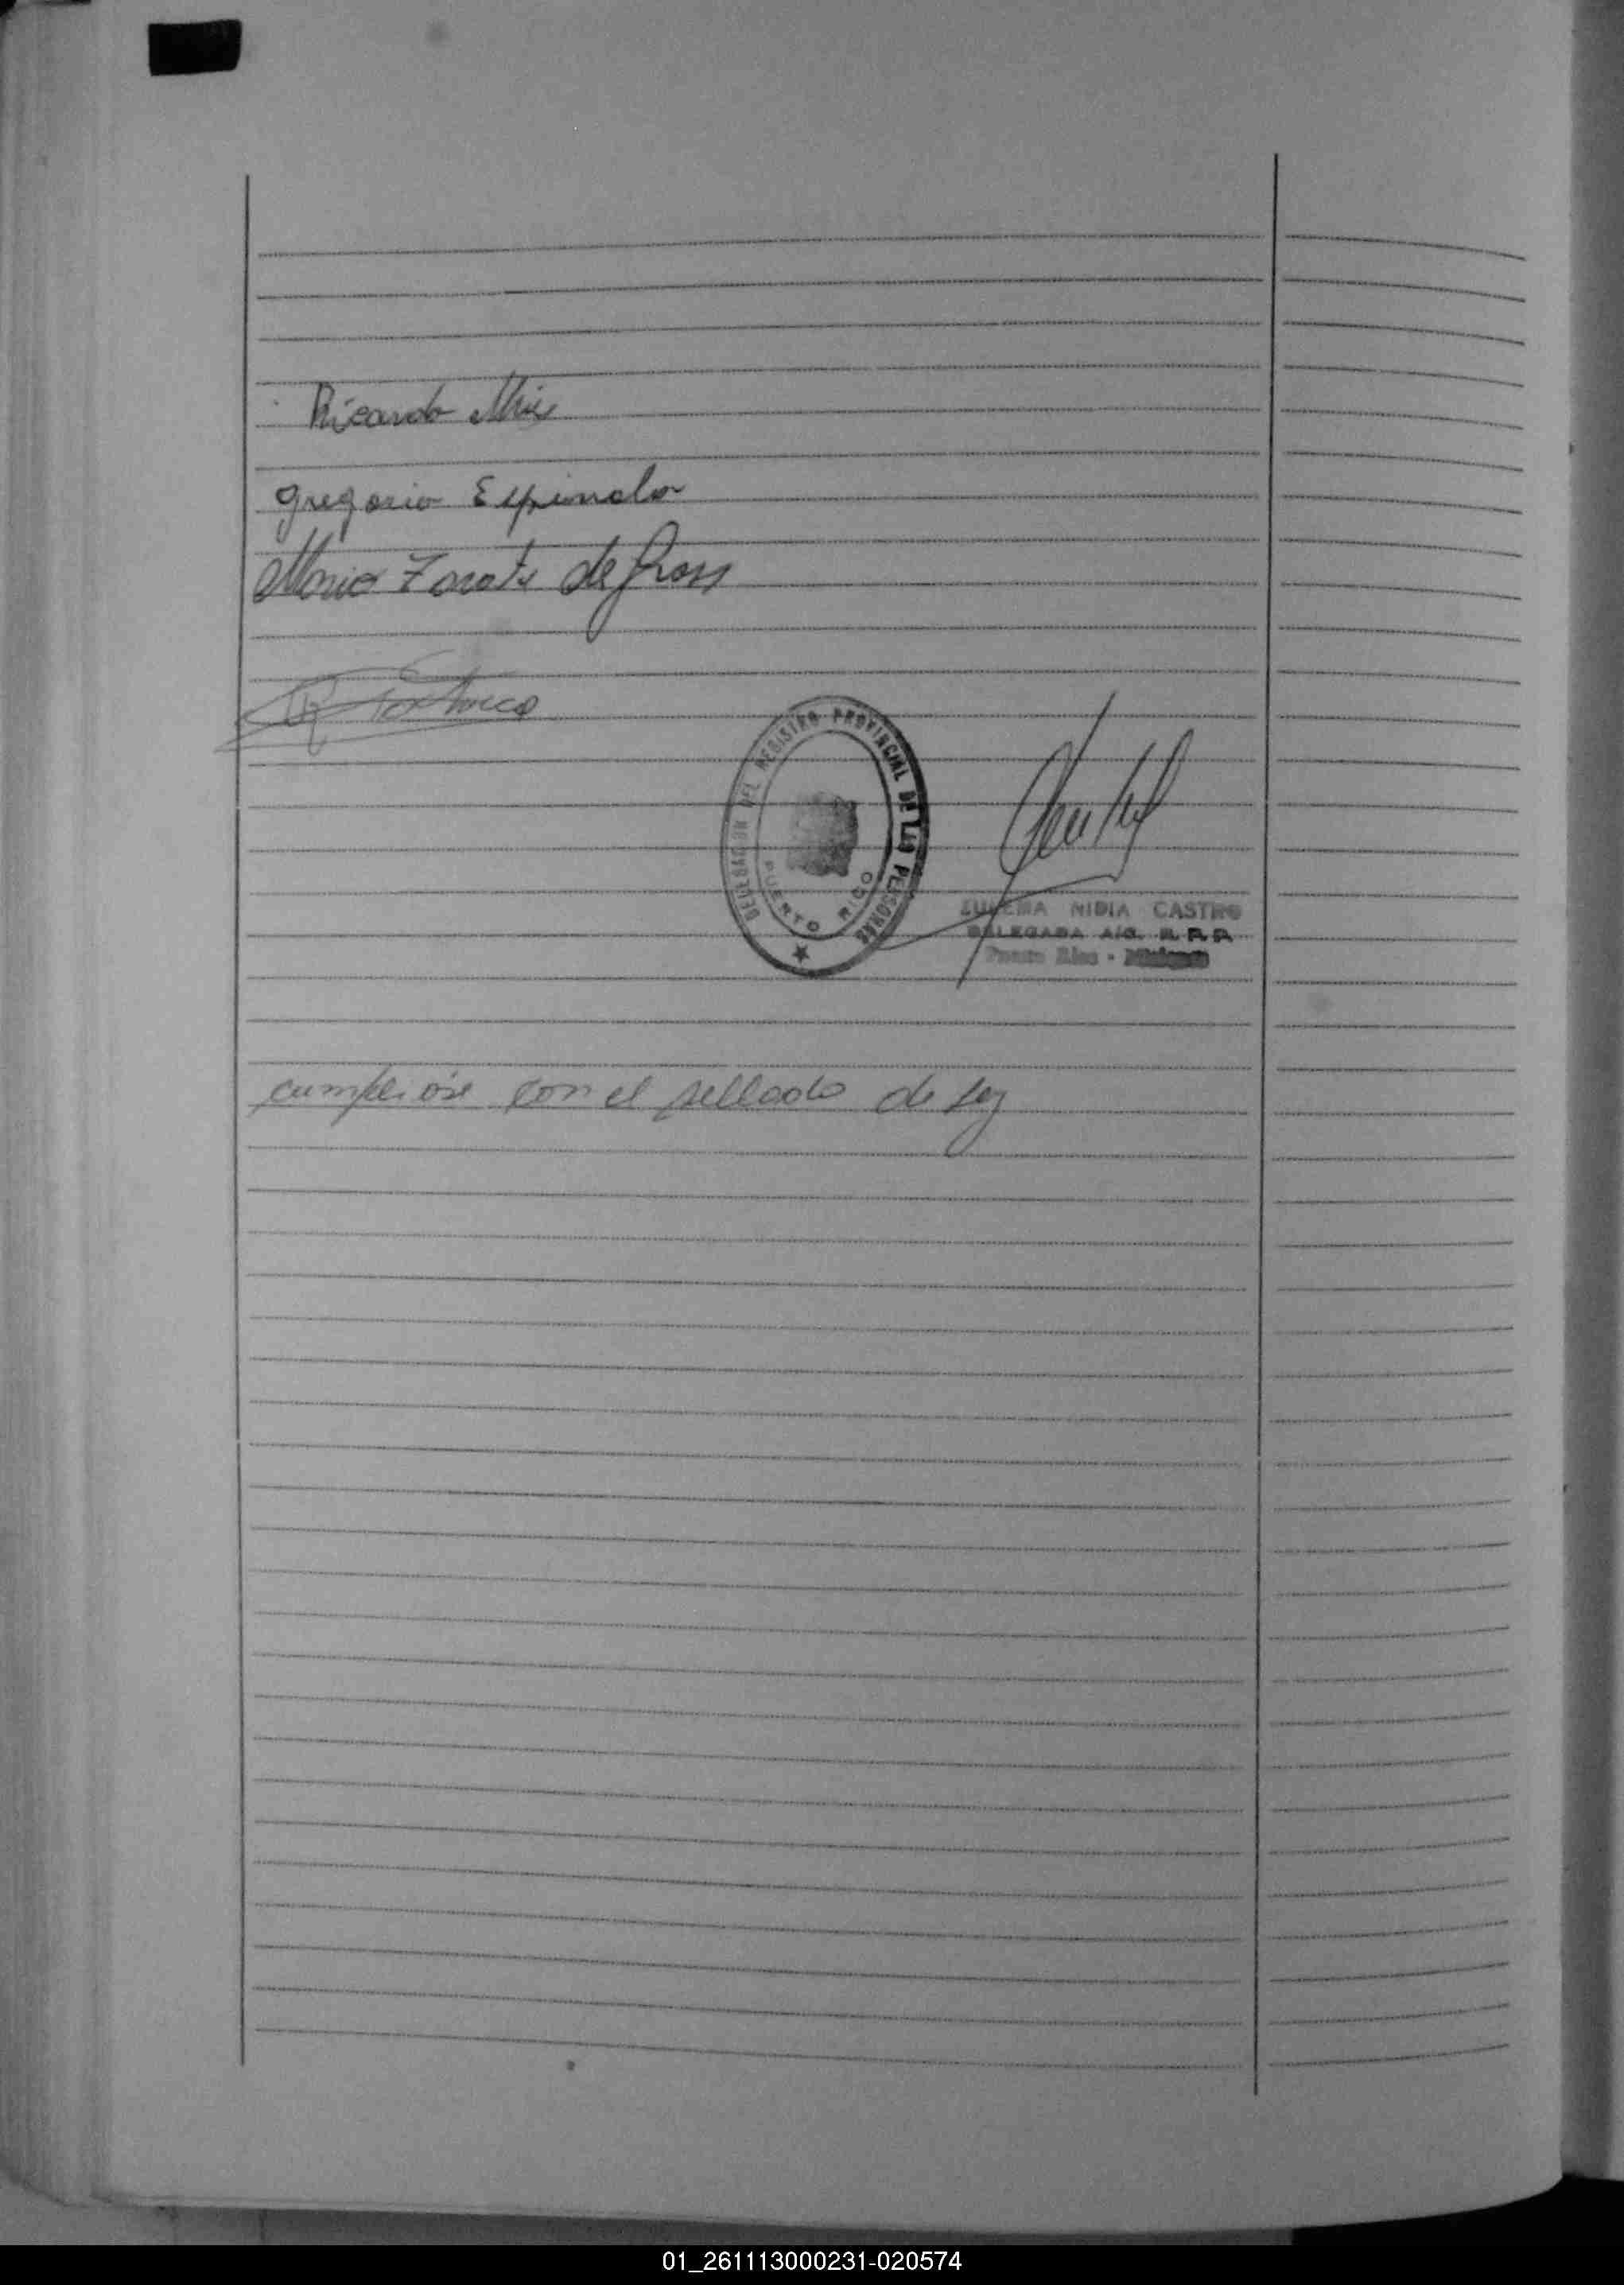 Ricardo
Gregorio Espindola
Maria Zarate de Gross
DELEGACION DEL REGISTRO PROVINCIAL DE LAS PERSONAS
PUERTO RICO
ZULEMA NIDIA CASTRO
DELEGADA A/C. R. P. P.
Puerto Rico - Misiones
cumplióse con el sellado de Ley
01_261113000231-020574